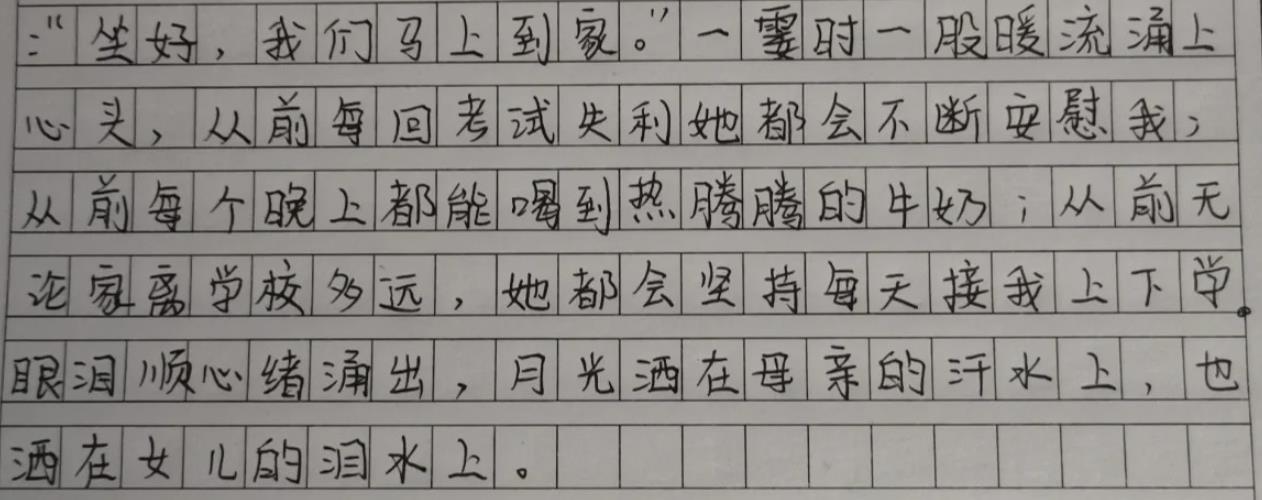 ：“坐好，我们马上到家。”一霎时一股暖流涌上
心头，从前每回考试失利她都会不断安慰我；
从前每个晚上都能喝到热腾腾的牛奶；从前无
论家离学校多远，她都会坚持每天接我上下学。
眼泪顺心绪涌出，月光洒在母亲的汗水上，也
洒在女儿的泪水上。